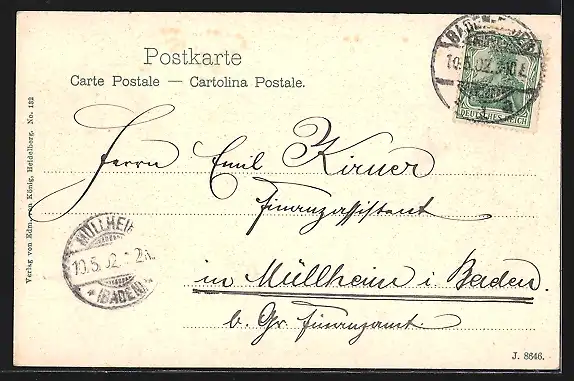 Postkarte
Carte Postale — Cartolina Postale.
BADEN-BADEN
10.5.02.
DEUTSCHES REICH
Herrn Emil Kirner
Finanzassistent
in Müllheim i. Baden.
b. Gr. Finanzamt.
MÜLLHEIM
10.5.02.
* (BADEN)
Verlag von Edm. von König, Heidelberg. No. 132
J. 8646.